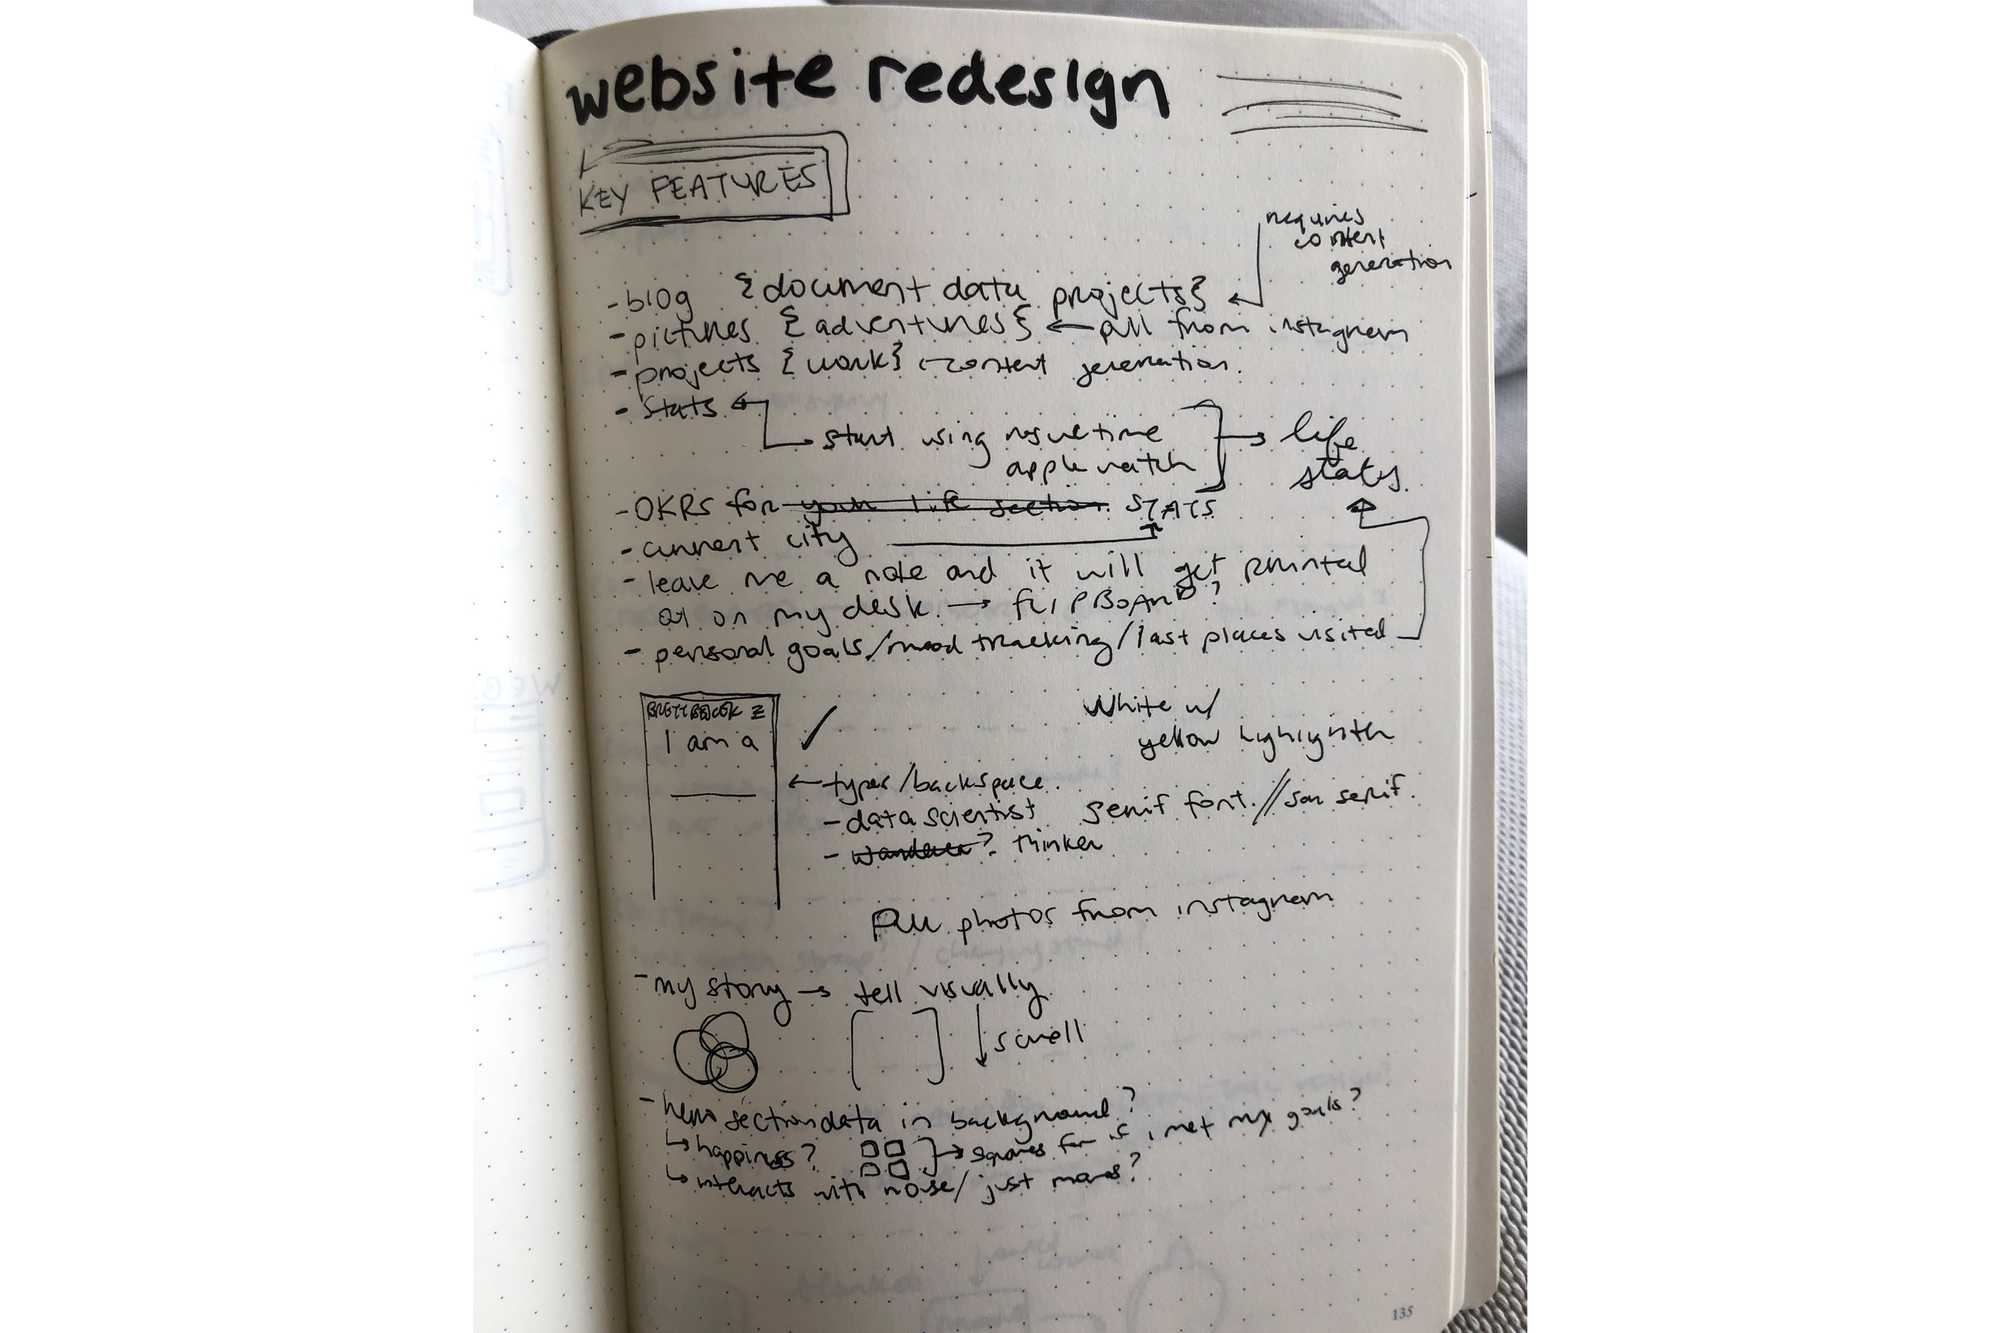 website redesign
KEY FEATURES
requires
content
generation
- blog {document data projects}
- pictures {adventures} ← pull from instagram
- projects {work} ← content generation.
- Stats
start using rescuetime
apple watch
life
stats
- OKRS for your life section STATS
- current city
- leave me a note and it will get printed
out on my desk → FLIPBOARD?
- personal goals/mood tracking/last places visited
BRETTBEJCEK
I am a
White w/
yellow highlights
← types/backspace
- data scientist
serif font. // san serif.
- wanderer? thinker
pull photos from instagram
- my story → tell visually
↓ scroll
- hero section data in background?
↳ happiness?
→ squares for if i met my goals?
↳ interacts with mouse/just moves?
135